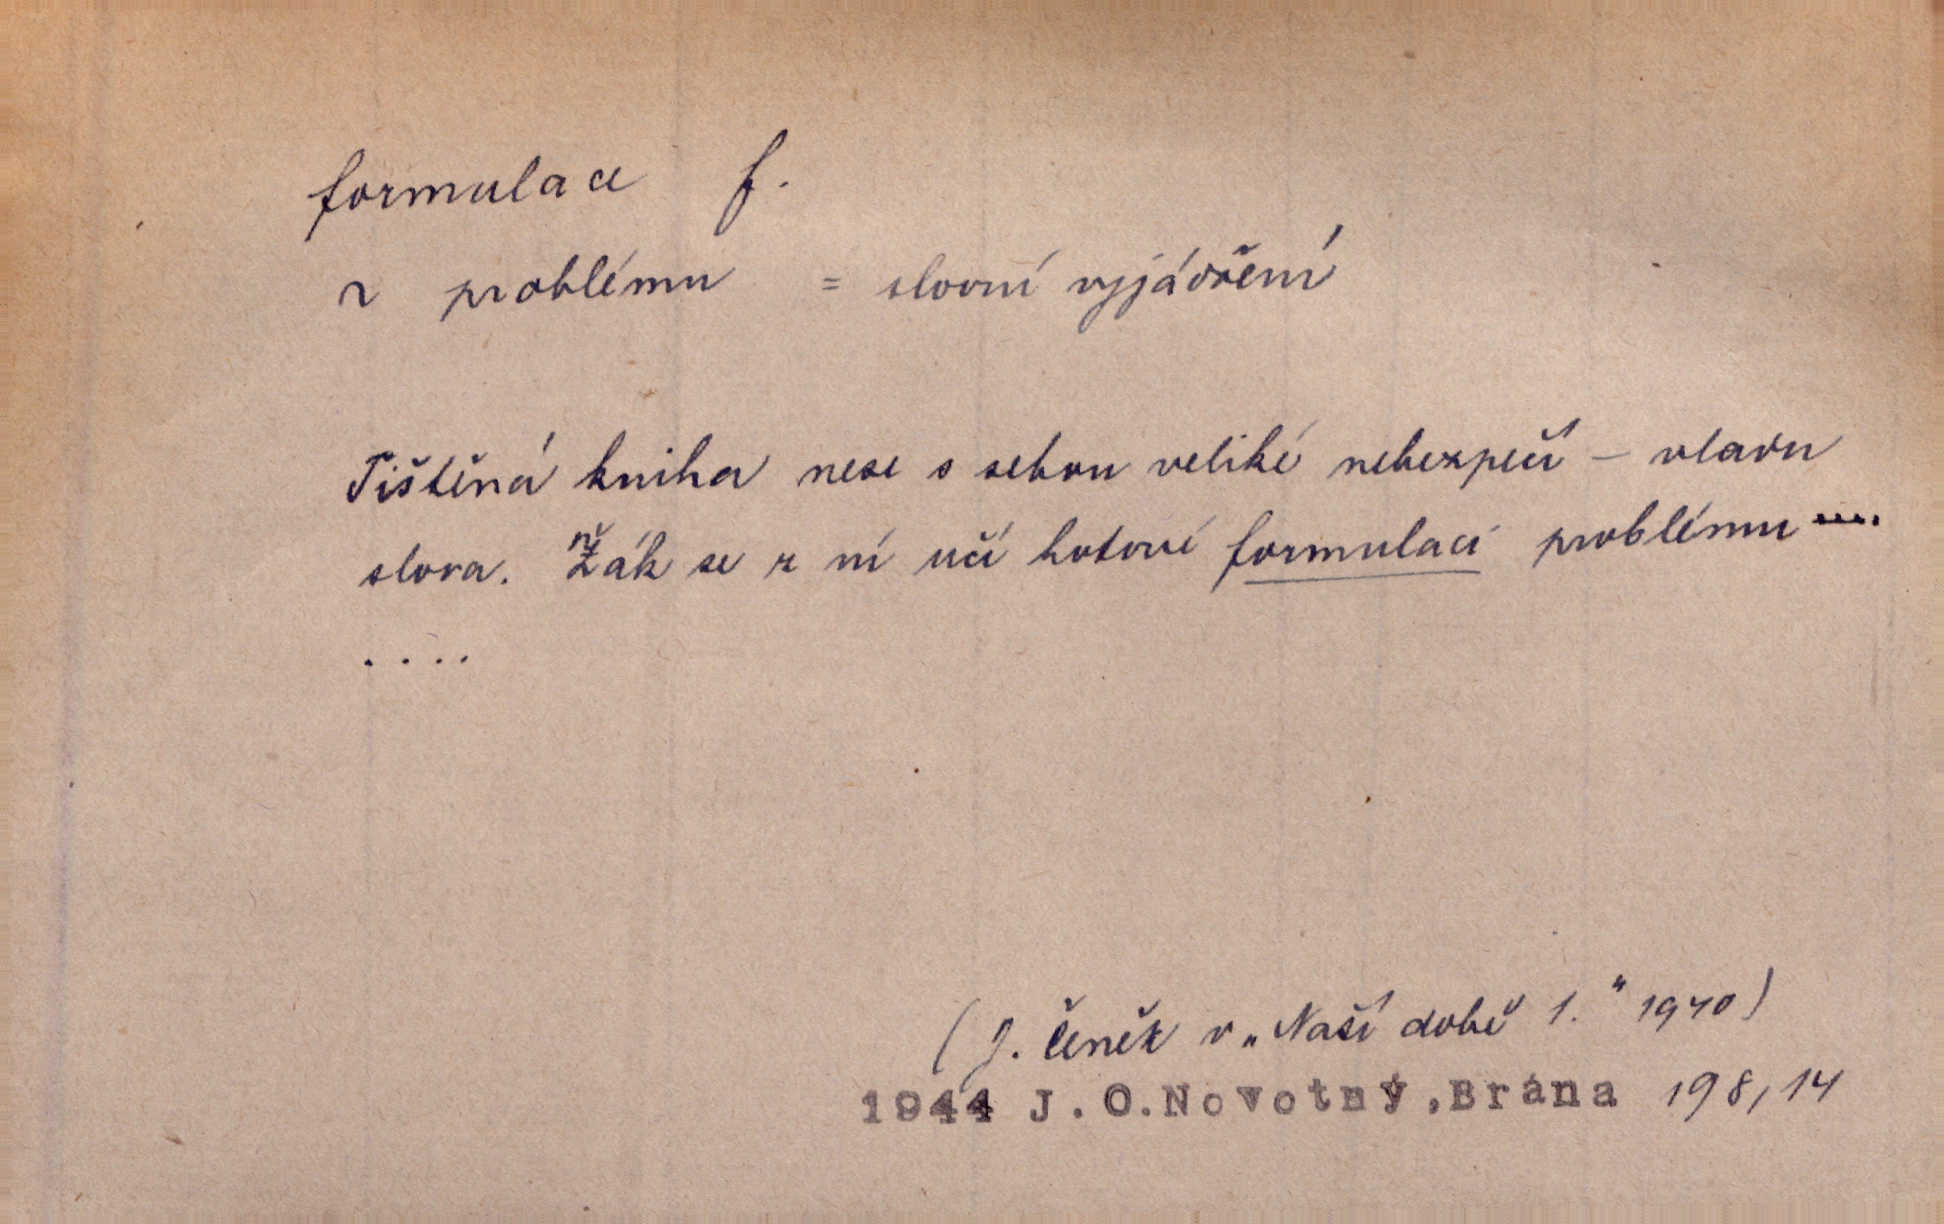 formulace f.
~ problému = slovní vyjádření
Tištěná kniha nese s sebou veliké nebezpečí – vládu
slova. Žák se z ní učí hotové formulaci problému ....
. . . .
(J. Čeněk v „Naší době 1.“ 1940)
1944 J.O.Novotný,Brána 198,14